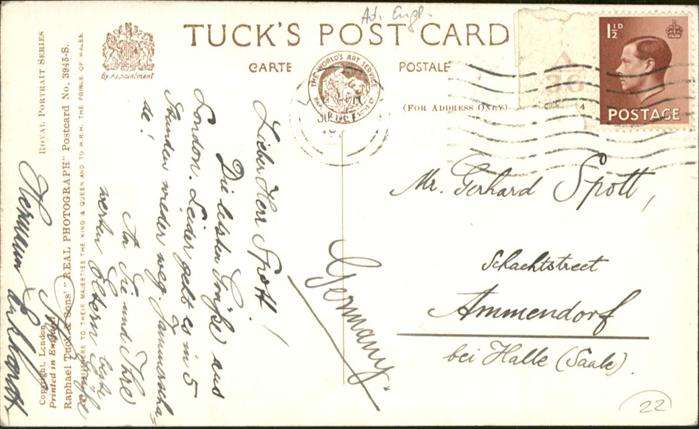 TUCK'S POST CARD
CARTE POSTALE
(FOR ADDRESS ONLY)
By Appointment
ROYAL PORTRAIT SERIES
"REAL PHOTOGRAPH" Postcard No. 3945-S.
Raphael Tuck & Sons'
TO THEIR MAJESTIES THE KING & QUEEN AND TO H.R.H. THE PRINCE OF WALES.
Copyright, London
Printed in England
Lieber Herr Spott!
Die letzten Grüße aus
London. Leider geht es in 5
Stunden wieder weg. Jammerscha-
de!
An Sie und Ihre
werten Eltern
Hermann
Germany
Mr. Gerhard Spott,
Schachtstreet
Ammendorf
bei Halle (Saale)
1½D
POSTAGE
A
36
22